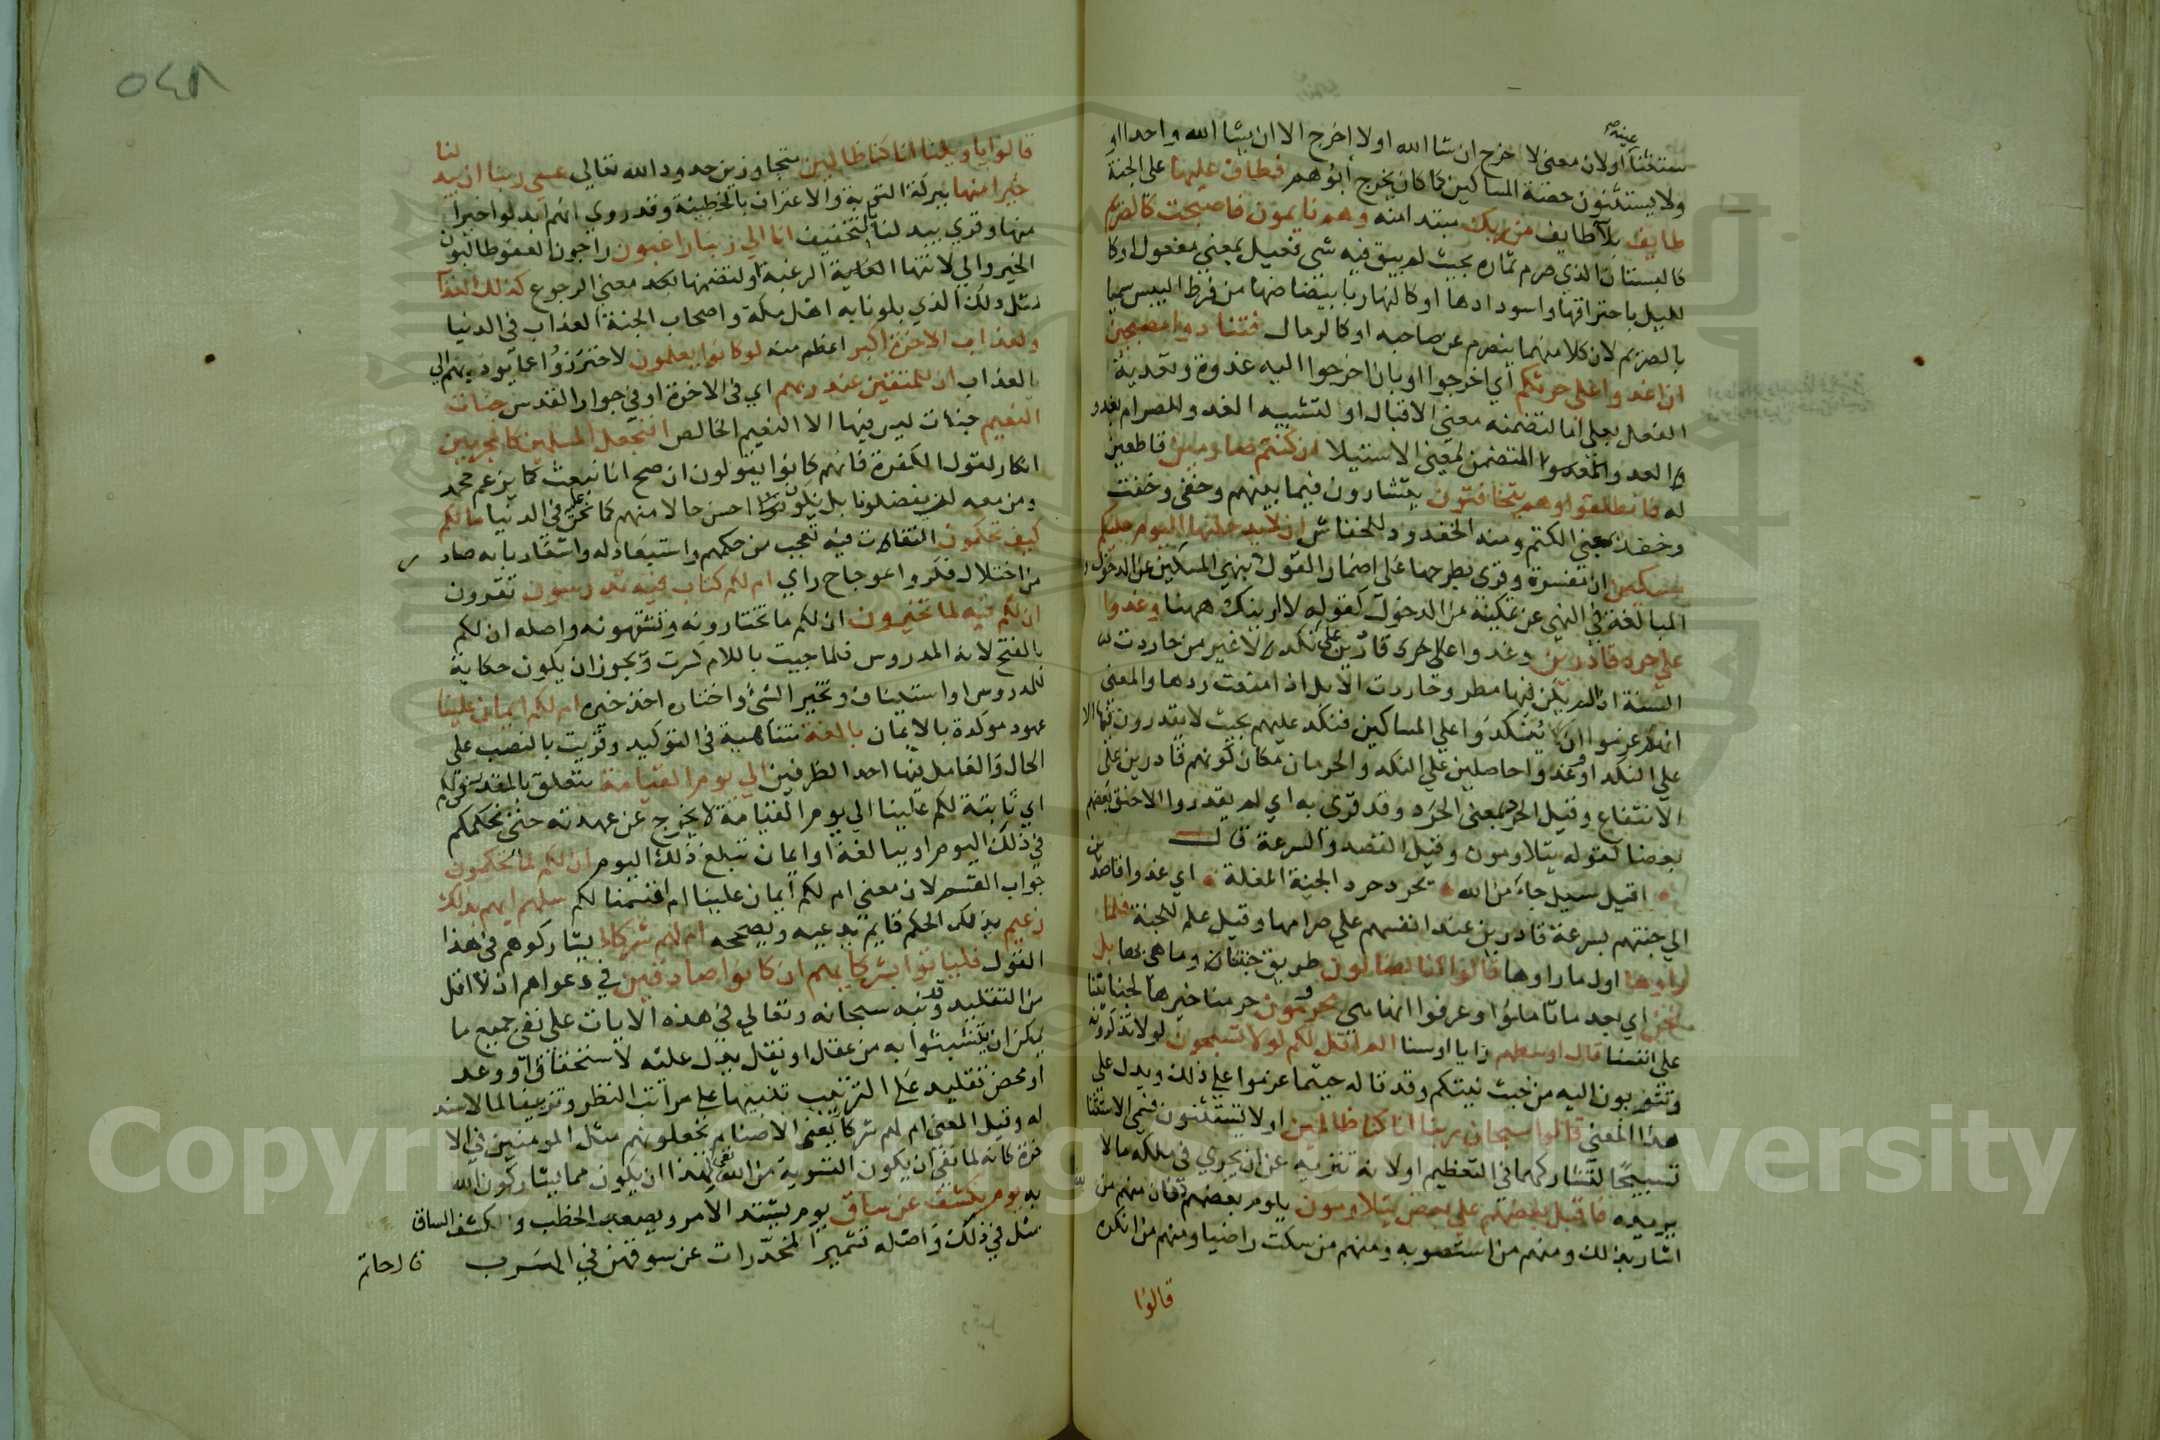 عينه صح
مستثنا اولان معنى لا اخرج ان شا الله او لا اخرج الا ان يشا الله واحدا او
ولا يستثنون حصة المساكين كما كان يخرج ابوهم فطاف عليها على الجنة
طايف بلا طايف من ربك مبتدا منه وهم نايمون فاصبحت كالصريم
كالبستان الذي صرم ثماره بحيث لم يبق فيه شى فعيل بمعنى مفعول او كا
لليل باحتراقها واسودادها او كالنهار بابيضاضها من فرط اليبس سميا
بالصريم لان كلا منهما ينصرم عن صاحبه او كالرمال فتنادوا مصبحين
ان اغدوا على حرثكم اي اخرجوا او بان اخرجوا اليه غدوة وتعدية
الفعل بعلى اما لتضمنه معنى الاقبال او لتشبيه الغدو للصرام بغدو
العدو المتضمن لمعنى الاستيلا ان كنتم صارمين قاطعين
له فانطلقوا وهم يتخافتون يتشارون فيما بينهم وخفى وخفت
وخفد بمعنى الكتم ومنه الخفدود للخفاش ان لا يدخلنها اليوم عليكم
مسكين ان مفسرة وقرى بطرحها على اضمار القول بنهي المسكين عن الدخول
المبالغة في النهى عن تمكينه من الدخول كقوله لا ارينك ههنا وغدوا
على حرد قادرين وغدوا على حرد قادرين على نكد لا غير من حاردت
السنة اذا لم يكن فيها مطر وحاردت الابل اذا منعت ردها والمعنى
انهم عزموا ان يتنكدوا على المساكين فنكد عليهم بحيث لا يقدرون فيها الا
على النكد او غدوا حاصلين على النكد والحرمان مكان كونهم قادرين على
الانتفاع وقيل الحرد بمعنى الحرد وقد قرى به اي لم يقدروا الا حنق بعضهم
بعضا لقوله يتلاومون وقيل القصد والسرعة قال
اقبل سيل جاء من الله يحرد حرد الجنة المغلة اي غدوا قاصدين
الى جنتهم بسرعة قادرين عند انفسهم على صرامها وقيل علم للجنة فلما
راوها اول ما راوها قالوا انا لضالون طريق جنتنا وما هى بها بل
نحن اي بعد ما تاملوا وعرفوا انها هى محرومون حرمنا خيرها لجنايتنا
على انفسنا قال اوسطهم رايا او سنا الم اقل لكم لولا تسبحون لولا تذكرونه
وتتوبون اليه من خبث نيتكم وقد قاله حيثما عزموا على ذلك ويدل على
هذا المعنى قالوا سبحان ربنا انا كنا ظالمين او لا تستثنون فسمى الاستثنا
تسبيحا لتشاركهما فى التعظيم او لانه تنزيه عن ان يجري فى ملكه ما لا
يريده فاقبل بعضهم على بعض يتلاومون يلوم بعضهم فان منهم من
اشار بذلك ومنهم من استصوبه ومنهم من سكت راضيا ومنهم من انكره
قالوا
٥٤٨
قالوا يا ويلنا انا كنا ظالمين متجاوزين حدود الله تعالى عسى ربنا ان يبدلنا
خيرا منها ببركة التوبة والاعتراف بالخطيئة وقد روي انهم ابدلوا خيرا
منها وقري يبدلنا بالتخفيف انا الى ربنا راغبون راجون العفو طالبون
الخير والى لانتها الغاية الرغبة او لتضمنها بعد معنى الرجوع كذلك العذاب
مثل ذلك الذي بلونا به اهل مكة واصحاب الجنة العذاب في الدنيا
ولعذاب الاخرة اكبر اعظم منه لو كانوا يعلمون لاحترزوا عما يوديهم الى
العذاب ان للمتقين عند ربهم اي فى الاخرة او في جوار القدس جنات
النعيم جنات ليس فيها الا النعيم الخالص افنجعل المسلمين كالمجرمين
انكار لقول الكفرة فانهم كانوا يقولون ان صح انا نبعث كما يزعم محمد
ومن معه لم يفضلونا بل نكون احسن حالا منهم كما نحن عليه في الدنيا ما لكم
كيف تحكمون التفات فيه تعجب من حكمهم واستبعاد له واشعار بانه صادر
من اختلال فكر واعوجاج راي ام لكم كتاب فيه تدرسون تقرون
ان لكم فيه لما تخيرون ان لكم ما تختارونه وتشتهونه واصله ان لكم
بالفتح لانه المدروس فلما جيت باللام كسرت ويجوز ان يكون حكاية
للمدروس او استينافا وتخير الشئ واختاره اخذ خيره ام لكم ايمان علينا
عهود موكدة بالايمان بالغة متناهية فى التوكيد وقريت بالنصب على
الحال والعامل فيها احد الظرفين الى يوم القيامة متعلق بالمقدر فى لكم
اي ثابتة لكم علينا الى يوم القيامة لا يخرج عن عهدته حتى نحكمكم
في ذلك اليوم او ببالغة او ايمان تبلغ ذلك اليوم ان لكم لما تحكمون
جواب القسم لان معنى ام لكم ايمان علينا ام اقسمنا لكم سلهم ايهم بذلك
زعيم بذلك الحكم قايم يدعيه ويصححه ام لهم شركاء يشاركوهم فى هذا
القول فلياتوا بشركايهم ان كانوا صادقين في دعواهم اذ لا اقل
من التقليد وقد نبه سبحانه وتعالى في هذه الايات على نفى جميع ما
يمكن ان يتشبثوا به من عقل او نقل يدل عليه لاستحقاق او وعد
او محض تقليد على الترتيب تنبيها على مراتب النظر وتزييفا لما لا سند
له وقيل المعنى ام لهم شركا يعنى الاصنام يجعلونهم مثل المومنين في الا
خرة كانه لما نفى ان يكون التسوية من الله نفى بهذا ان يكون مما يشاركون الله
به يوم يكشف عن ساق يوم يشتد الامر ويصعب الخطب وكشف الساق
مثل في ذلك واصله تشمير المخدرات عن سوقهن في الهرب قال حاتم
Copyright © King Saud University